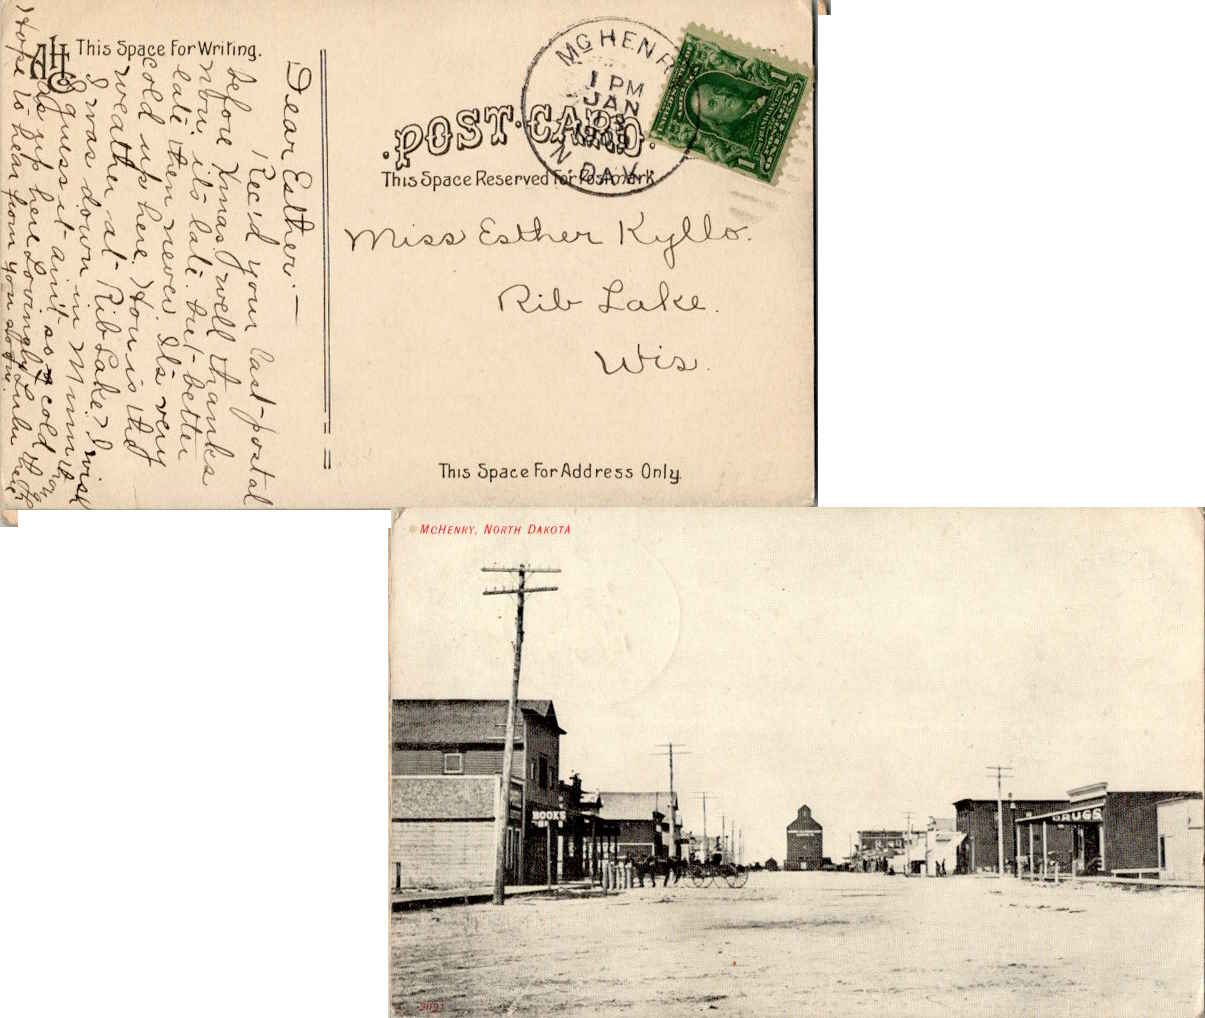 This Space For Writing.
Dear Esther.—
Rec'd your last postal
before Xmas, well thanks
now, it's late. but better
late then never. It's very
cold up here. How is the
weather at Rib Lake? I wish
I was down in Minn
I guess it ain't so cold
as up here. Lovingly Lulu
Hope to hear from you
AHS
POST CARD.
This Space Reserved For Postmark
McHENRY
1 PM
JAN
N. DAK.
1 1
Miss Esther Kyllo.
Rib Lake.
Wis.
This Space For Address Only.
McHENRY, NORTH DAKOTA
BOOKS
DRUGS